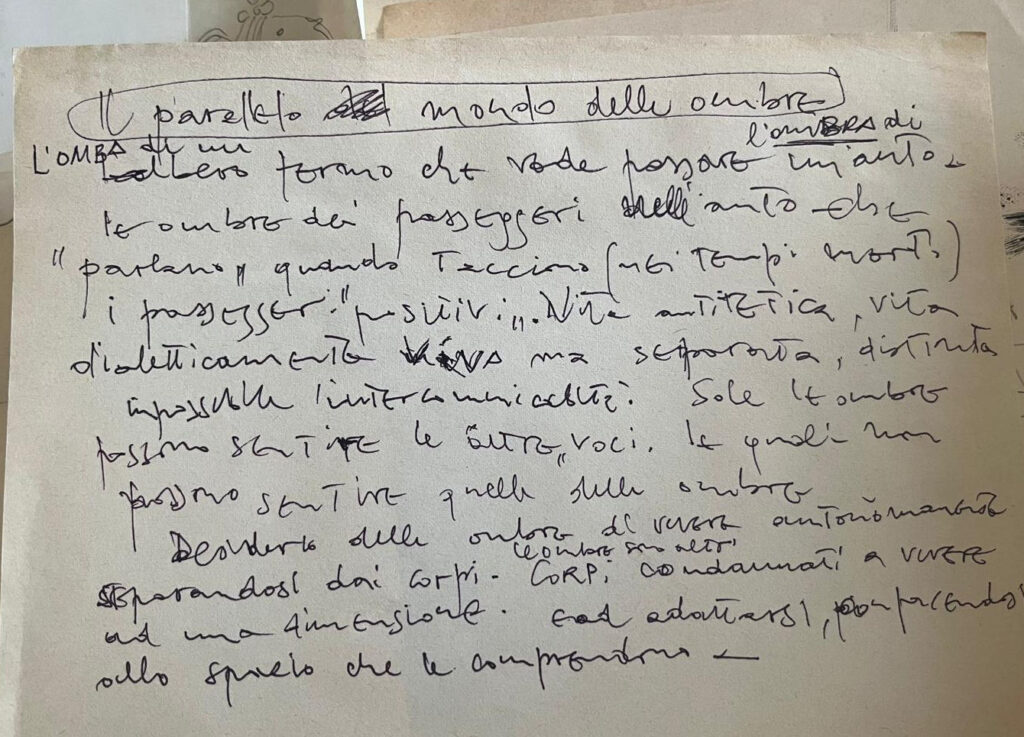 Il parallelo mondo delle ombre
L'OMBA di un l'OMBRA di
albero fermo che vede passare un'auto -
le ombre dei passeggeri dell'auto che
"parlano„ quando tacciono (nei tempi morti)
i passeggeri "positivi„. Vita antitetica, vita
dialetticamente viva ma separata, distinta
impossibile l'intercomunicabilità. Solo le ombre
possono sentire le altre„ voci. le quali non
possono sentire quelle delle ombre
Desiderio delle ombre di vivere autonomamente
le ombre sono altri
separandosi dai corpi. CORPi condannati a vivere
ad una dimensione. ed adattarsi,
allo spazio che le comprendono -